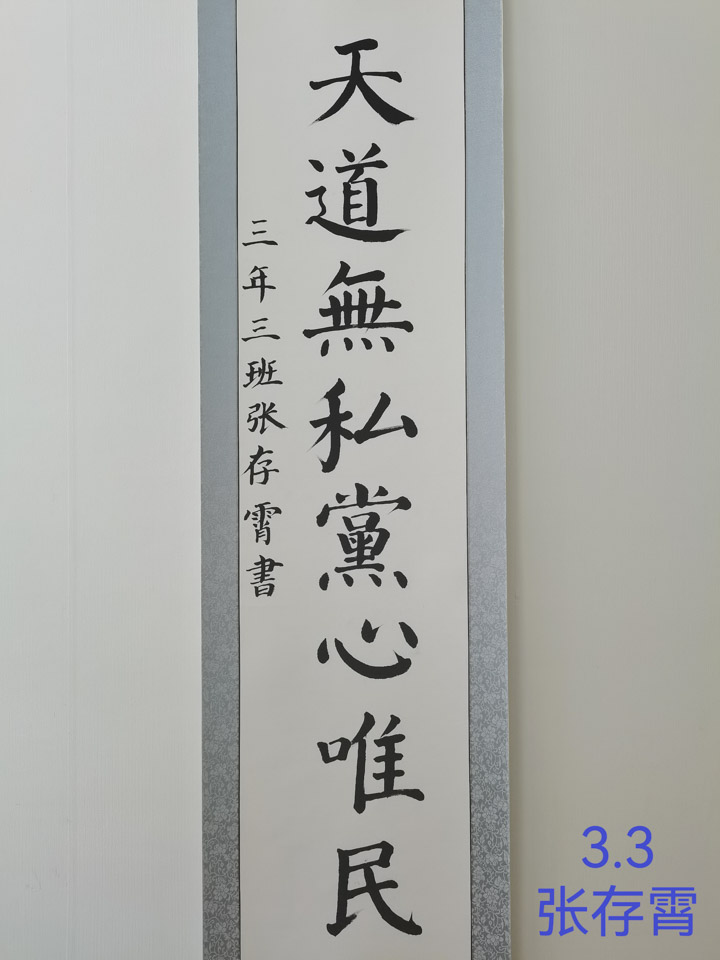 天道無私黨心唯民
三年三班张存霄書
3.3
张存霄